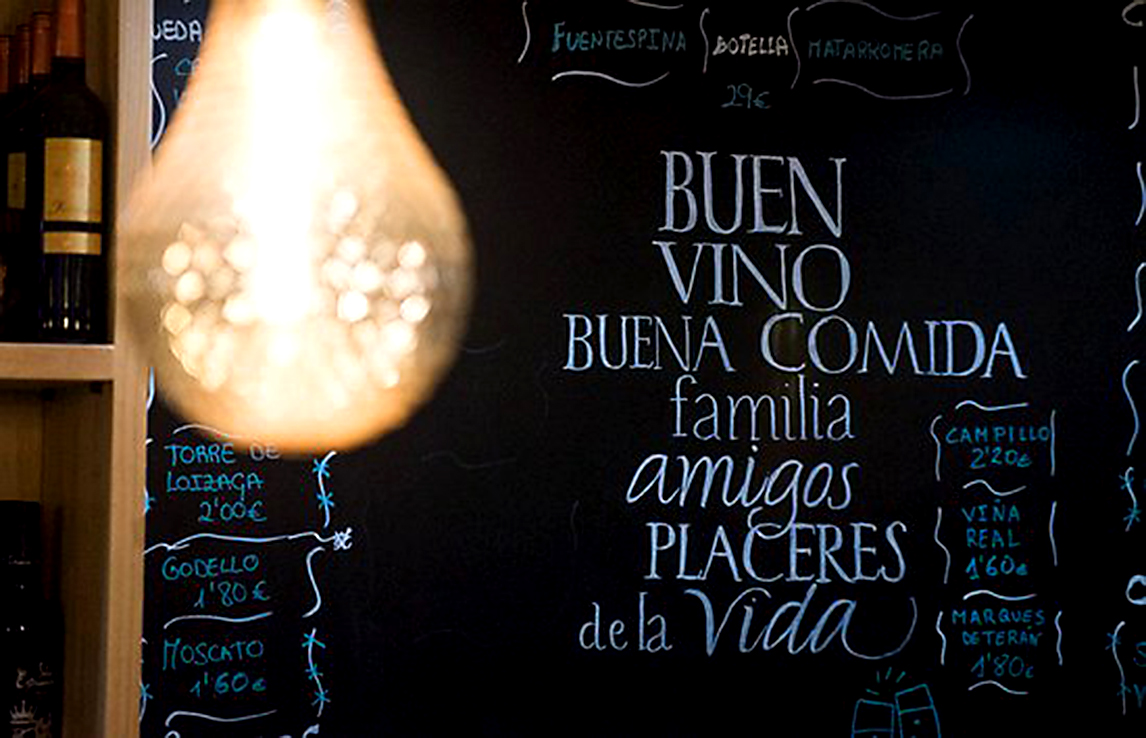 FUENTESPINA
BOTELLA
MATARROMERA
29€
BUEN
VINO
BUENA COMIDA
familia
amigos
PLACERES
de la Vida
TORRE DE
LOIZAGA
2'00€
GODELLO
1'80€
MOSCATO
1'60€
CAMPILLO
2'20€
VIÑA
REAL
1'60€
MARQUES
DE TERÁN
1'80€